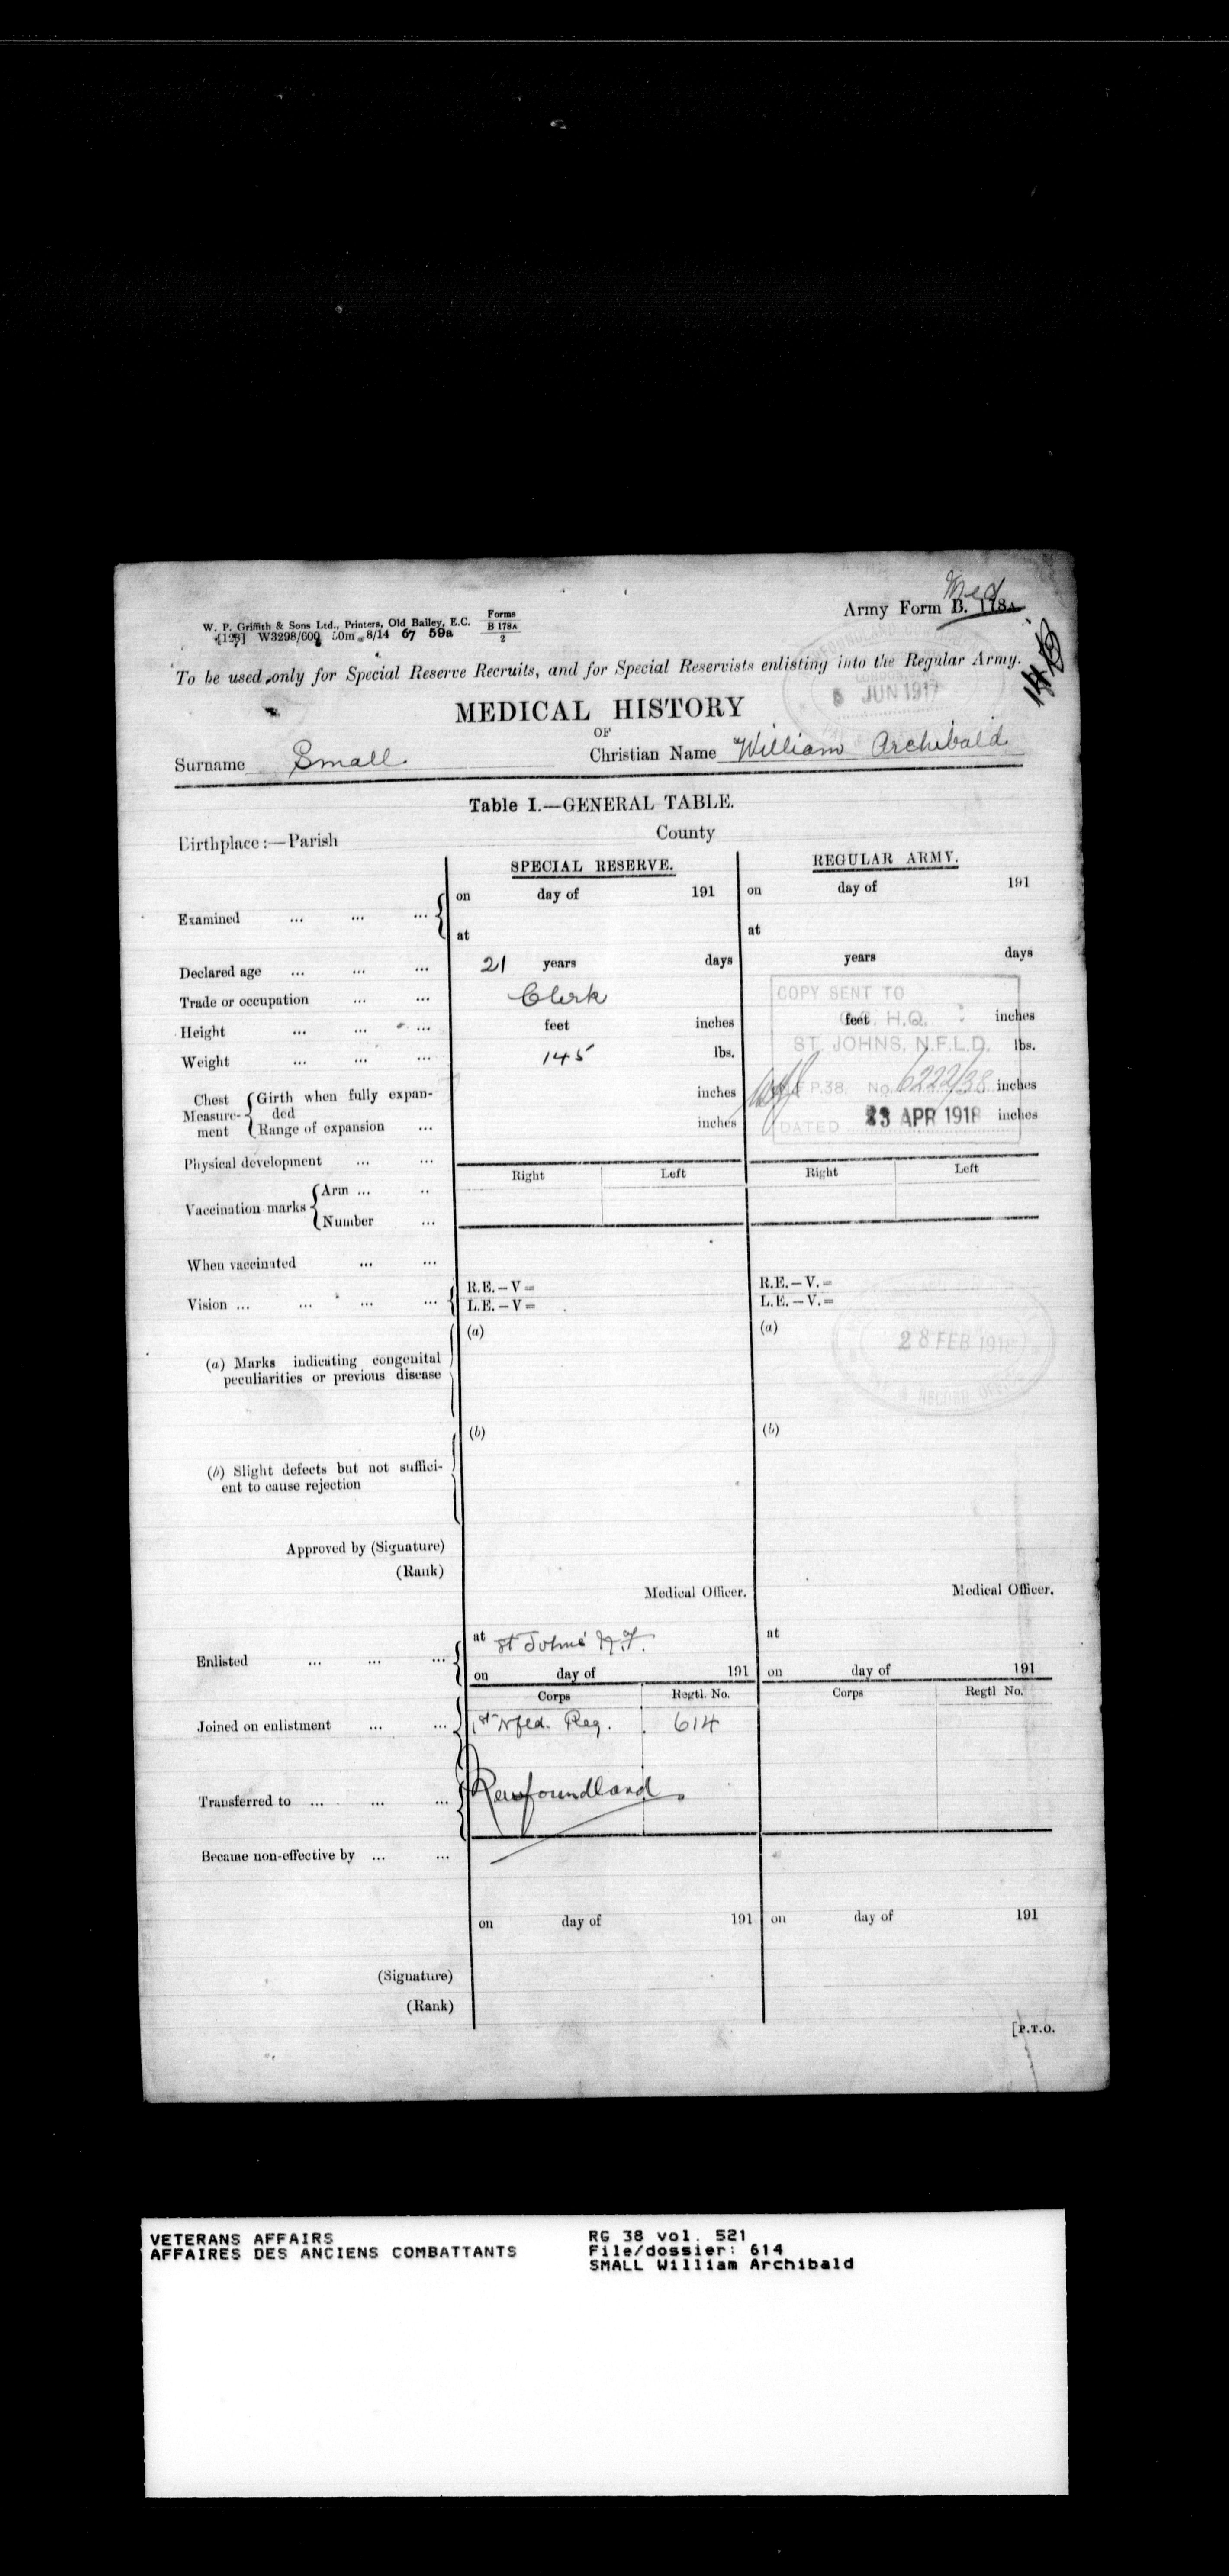 Med
Army Form B. 178A
W. P. Griffith & Sons Ltd., Printers, Old Bailey, E.C.
Forms
B 178A
2
W3298/600 50m 8/14 67 59a
To be used only for Special Reserve Recruits, and for Special Reservists enlisting into the Regular Army.
JUN 1917
MEDICAL HISTORY
OF
Surname Small Christian Name William Archibald
Table I.—GENERAL TABLE.
Birthplace:—Parish County
SPECIAL RESERVE. REGULAR ARMY.
on day of 191 on day of 191
Examined ... ... ...
at at
Declared age ... ... ... 21 years days years days
Trade or occupation ... ... Clerk
COPY SENT TO
Height ... ... ... feet inches feet inches
H.Q.
Weight ... ... ... 145 lbs. lbs.
ST. JOHNS, N.F.L.D.
Chest Measurement
Girth when fully expanded inches inches
P.38. No. 6222/38
Range of expansion ... inches inches
DATED 23 APR 1918
Physical development ... ...
Right Left Right Left
Vaccination marks
Arm ... ..
Number ...
When vaccinated ... ...
Vision ... ... ... ...
R.E.—V= R.E.—V.=
L.E.—V= L.E.—V.=
(a) (a)
28 FEB 1918
PAY & RECORD OFFICE
(a) Marks indicating congenital
peculiarities or previous disease
(b) (b)
(b) Slight defects but not suffici-
ent to cause rejection
Approved by (Signature)
(Rank)
Medical Officer. Medical Officer.
at St Johns N.F. at
Enlisted ... ... ...
on day of 191 on day of 191
Corps Regtl. No. Corps Regtl No.
Joined on enlistment ... ... 1st Nfld. Reg. 614
Transferred to ... ... ... Newfoundland
Became non-effective by ... ...
on day of 191 on day of 191
(Signature)
(Rank)
[P.T.O.
VETERANS AFFAIRS
AFFAIRES DES ANCIENS COMBATTANTS
RG 38 vol. 521
File/dossier: 614
SMALL William Archibald